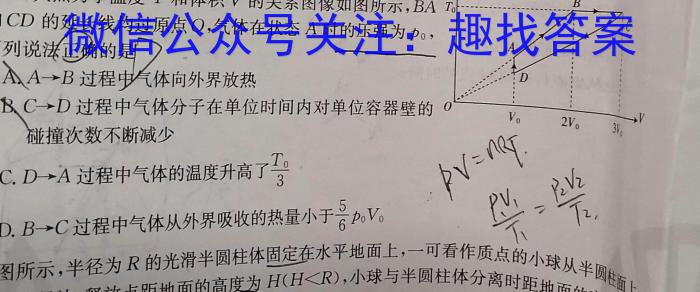 的关系图像如图所示,BA
CD 的
原点O,气体在状态A时的压强为p₀,
列说法正确的是
微信公众号关注:趣找答案
A. A→B 过程中气体向外界放热
B. C→D 过程中气体分子在单位时间内对单位容器壁的
碰撞次数不断减少
C. D→A 过程中气体的温度升高了T₀/3
D. B→C 过程中气体从外界吸收的热量小于5/6 p₀V₀
图所示,半径为R的光滑半圆柱体固定在水平地面上,一可看作质点的小球从半圆柱面上
释放点距地面的高度为H(H<R),小球与半圆柱体分离时距地面的
T₀
B
A
D
O
V₀
2V₀
3V₀
V
PV=nRT.
P₁V₁/T₁=P₂V₂/T₂.